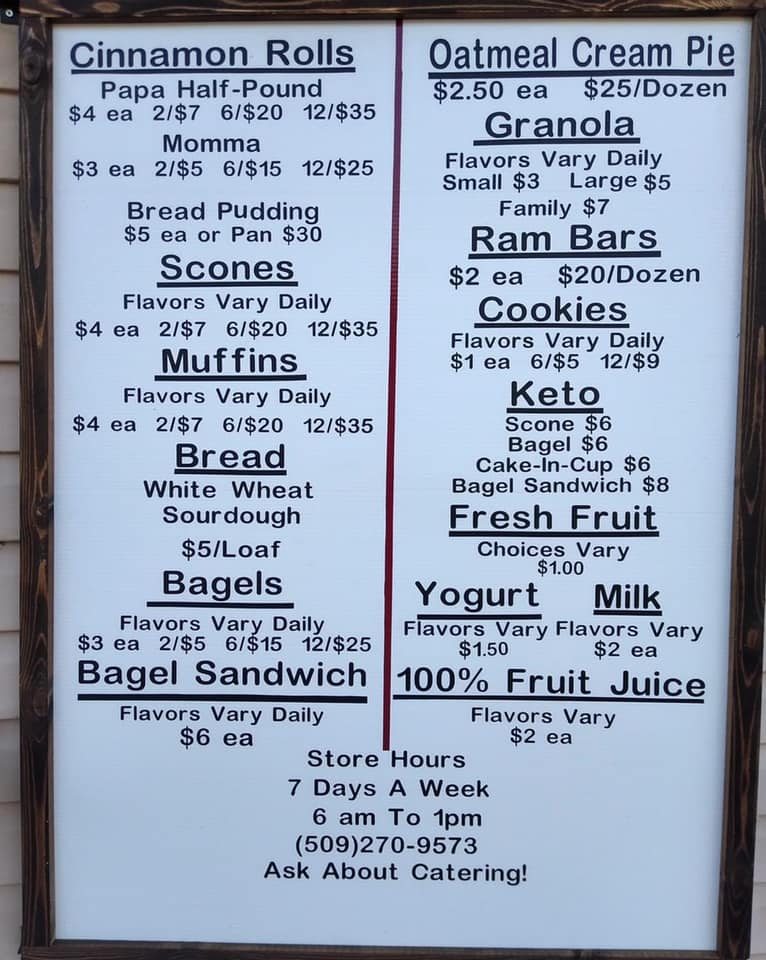 Cinnamon Rolls
Papa Half-Pound
$4 ea 2/$7 6/$20 12/$35
Momma
$3 ea 2/$5 6/$15 12/$25
Bread Pudding
$5 ea or Pan $30
Scones
Flavors Vary Daily
$4 ea 2/$7 6/$20 12/$35
Muffins
Flavors Vary Daily
$4 ea 2/$7 6/$20 12/$35
Bread
White Wheat
Sourdough
$5/Loaf
Bagels
Flavors Vary Daily
$3 ea 2/$5 6/$15 12/$25
Bagel Sandwich
Flavors Vary Daily
$6 ea
Oatmeal Cream Pie
$2.50 ea $25/Dozen
Granola
Flavors Vary Daily
Small $3 Large $5
Family $7
Ram Bars
$2 ea $20/Dozen
Cookies
Flavors Vary Daily
$1 ea 6/$5 12/$9
Keto
Scone $6
Bagel $6
Cake-In-Cup $6
Bagel Sandwich $8
Fresh Fruit
Choices Vary
$1.00
Yogurt Milk
Flavors Vary Flavors Vary
$1.50 $2 ea
100% Fruit Juice
Flavors Vary
$2 ea
Store Hours
7 Days A Week
6 am To 1pm
(509)270-9573
Ask About Catering!